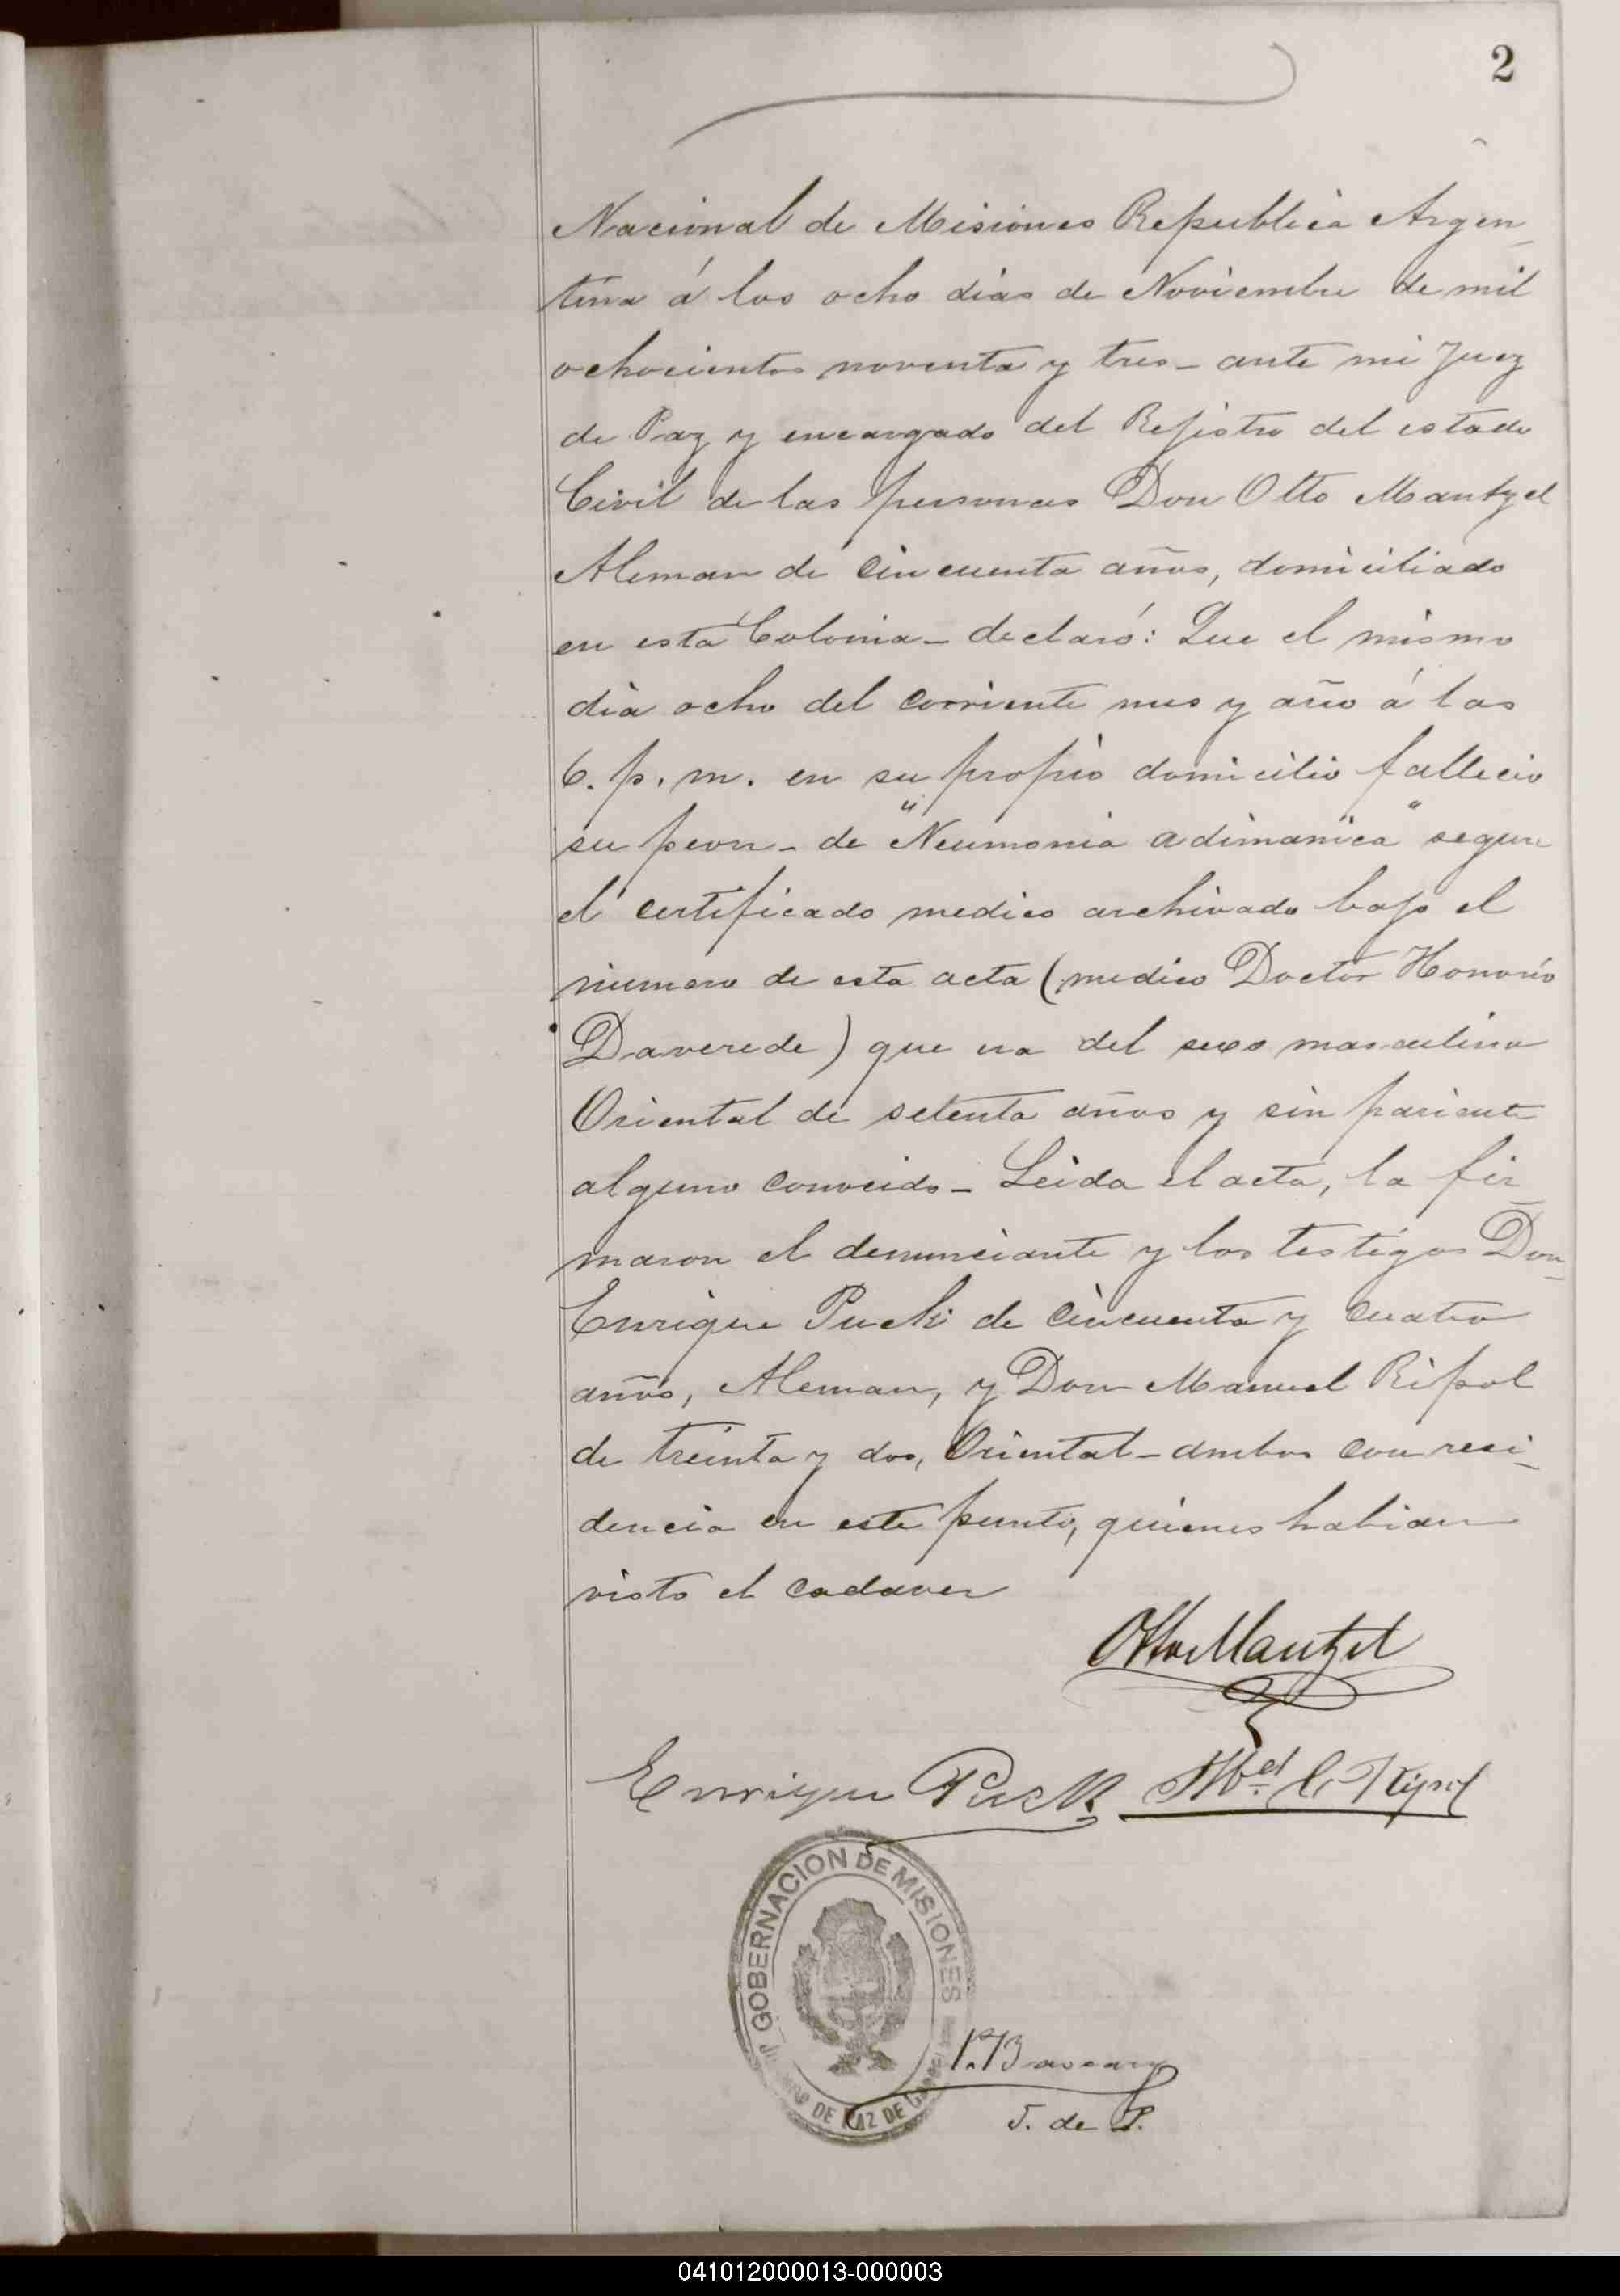 2
Nacional de Misiones Republica Argen_
tina á los ocho dias de Noviembre de mil
ochocientos noventa y tres_ ante mi Juez
de Paz y encargado del Rejistro del estado
Civil de las personas Don Otto Mantzel
Aleman de cincuenta años, domiciliado
en esta Colonia_ declaró: Que el mismo
dia ocho del corriente mes y año á las
6. p. m. en su propio domicilio fallecio
su peon_ de "Neumonia adimanica" segun
el certificado medico archivado bajo el
numero de esta acta (medico Doctor Honorio
Daverede) que era del sexo masculino
Oriental de setenta años y sin pariente
alguno conocido_ Leida el acta, la fir_
maron el denunciante y los testigos Don_
Enrique Puck de cincuenta y cuatro
años, Aleman, y Don Manuel Ripol
de treinta y dos, Oriental_ ambos con resi_
dencia en este punto, quienes habian
visto el cadaver
Otto Mantzel
Enrique Puck Mel C. Ripol
GOBERNACION DE MISIONES
DE PAZ DE
J. de P.
041012000013-000003